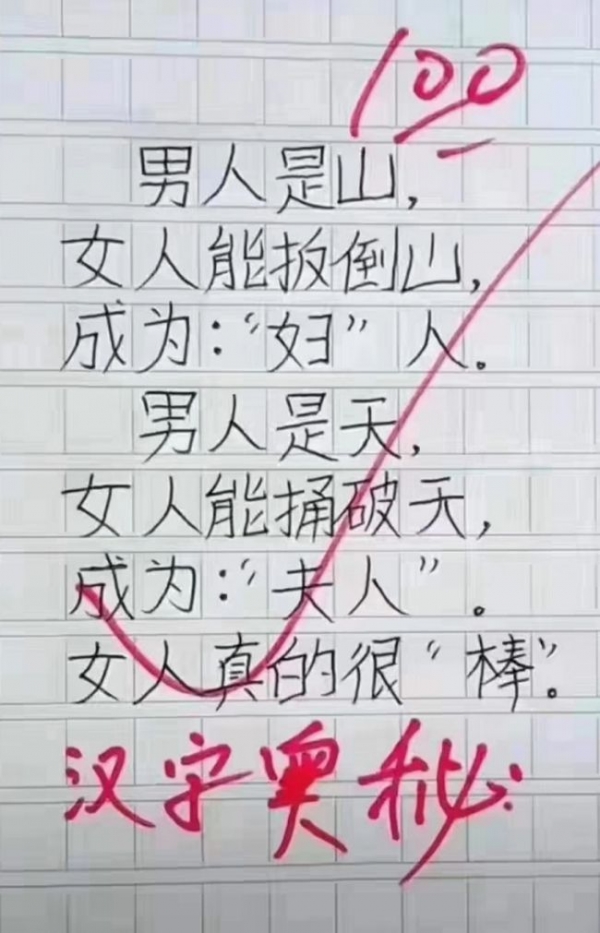 100
男人是山，
女人能扳倒山，
成为：“妇”人。
男人是天，
女人能捅破天，
成为：“夫人”。
女人真的很“棒”。
汉字奥秘